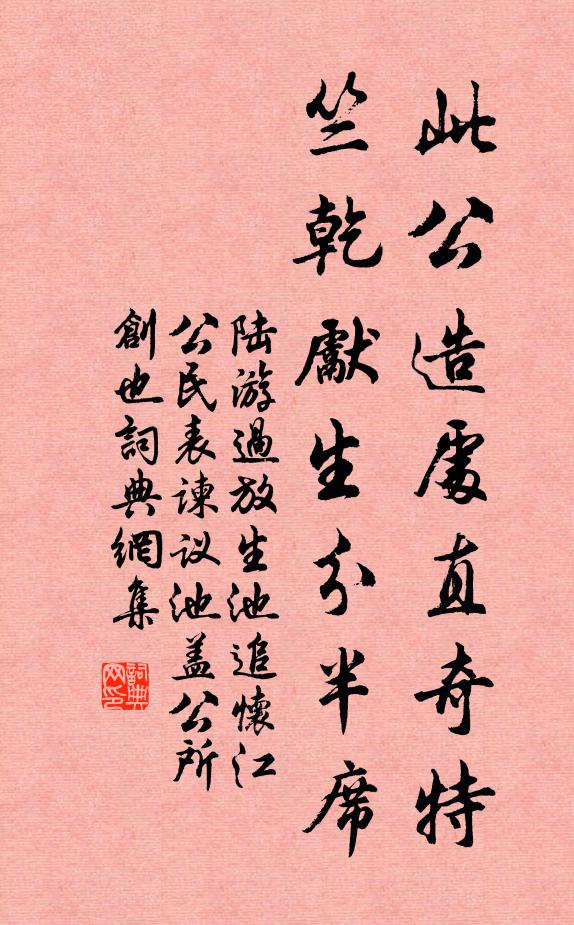 此公造處直奇特
竺乾獻生分半席
陆游過放生池追懷江
公民表諫议池盖公所
創也詞典網集
詞典网印